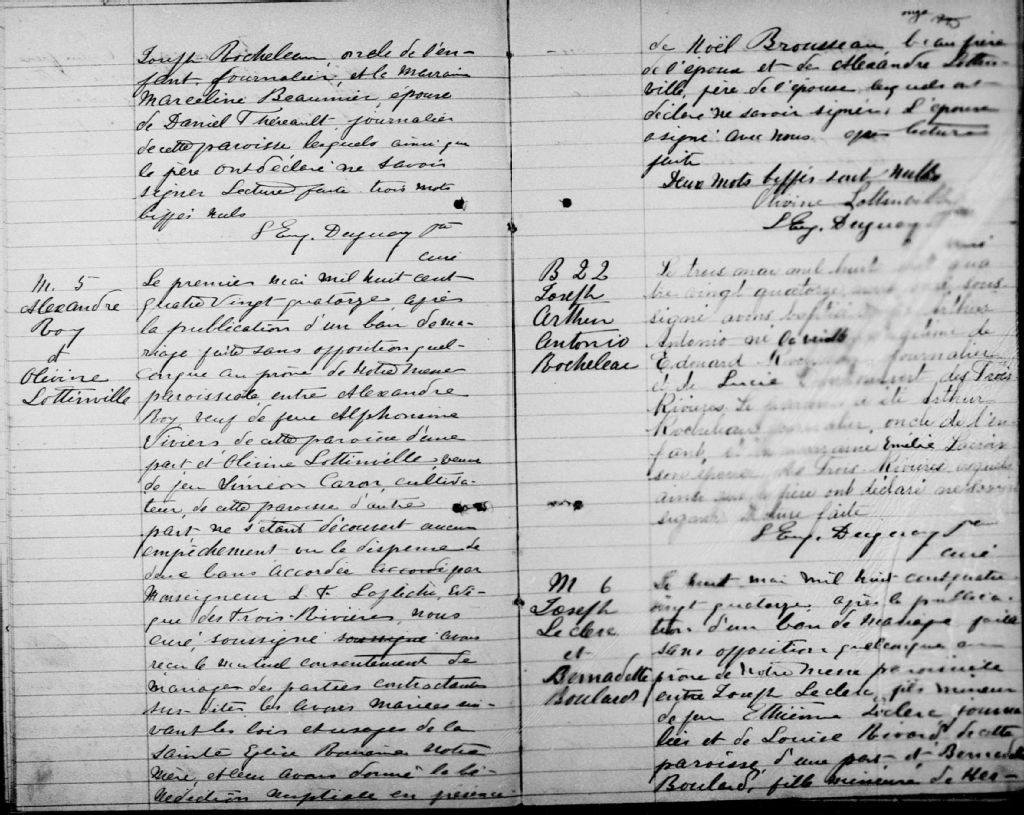 Joseph Rocheleau, oncle de l'en-
fant, journalier et la Marraine
Marceline Beaumier, épouse
de Daniel Thereault, journalier
de cette paroisse lesquels ainsi que
le père ont déclaré ne savoir
signer Lecture faite trois mots
biffés nuls
L Eug. Duguay Ptre
curé
M. 5
Alexandre
Roy
et
Olivine
Lottinville
Le premier mai mil huit cent
quatre vingt quatorze, après
la publication d'un ban de ma-
riage faite sans opposition quel-
conque au prône de Notre Messe
paroissiale entre Alexandre
Roy veuf de feue Alphonsine
Viviers de cette paroisse d'une
part et Olivine Lottinville, veuve
de feu Siméon Caron, cultiva-
teur, de cette paroisse d'autre
part ne s'étant découvert aucun
empêchement vu la dispense de
deux bans accordée accordé par
Monseigneur L. F. Laflèche, évê-
que des Trois-Rivières, nous
curé, soussigné soussigné avons
reçu le mutuel consentement de
mariage des parties contractantes
sus-dites, les avons mariées sui-
vant les lois et usages de la
Sainte Eglise Romaine Notre
Mère, et leur avons donné la bé-
nédiction nuptiale en présence
onze
de Noël Brousseau, beau frère
de l'époux et de Alexandre Lottin-
ville, père de l'épouse, lesquels ont
déclaré ne savoir signer. L'épouse
a signé avec nous lecture
faite
Deux mots biffés sont nuls
Olivine Lottinville
L Eug. Duguay Ptre
curé
B 22
Joseph
Arthur
Antonio
Rocheleau
Le trois mai mil huit cent qua
tre vingt quatorze nous curé sous-
signé avons baptisé Arthur
Antonio né la veille légitime de
Edouard journalier
et de Lucie des Trois
Rivières. Le parrain a été Arthur
Rocheleau journalier, oncle de l'en-
fant, et la marraine Emélie Lacroix
son épouse des Trois-Rivières lesquels
ainsi que le père ont déclaré ne savoir
signer Lecture faite
L Eug. Duguay Ptre
curé
M 6
Joseph
Leclerc
et
Bernadette
Boulard
Le huit mai mil huit cent quatre
vingt quatorze, après la publica-
tion d'un ban de mariage faite
sans opposition quelconque au
prône de Notre Messe paroissiale
entre Joseph Leclerc, fils mineur
de feu Ethienne Leclerc, journa
lier et de Louise Rivard, de cette
paroisse d'une part et Bernadette
Boulard, fille mineure de Her-